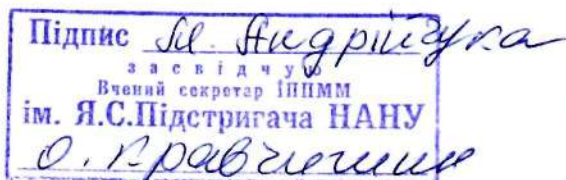 Підпис М. Андрійчука
засвідчую
Вчений секретар ІППММ
ім. Я.С.Підстригача НАНУ
О. Кравчишин